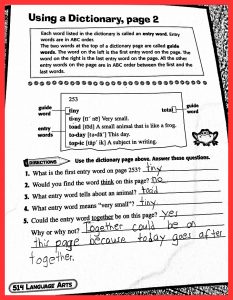 Using a Dictionary, page 2
Each word listed in the dictionary is called an entry word. Entry
words are in ABC order.
The two words at the top of a dictionary page are called guide
words. The word on the left is the first entry word on the page. The
word on the right is the last entry word on the page. All the other
entry words on the page are in ABC order between the first and the
last words.
253
guide word
tiny
total
guide word
entry words
ti·ny Very small.
toad [tōd] A small animal that is like a frog.
to·day This day.
top·ic A subject in writing.
DIRECTIONS Use the dictionary page above. Answer these questions.
1. What is the first entry word on page 253? tiny
2. Would you find the word think on this page? no
3. What entry word tells about an animal? toad
4. What entry word means "very small"? tiny
5. Could the entry word together be on this page? yes
Why or why not? Together could be on
this page because today goes after
together.
514 LANGUAGE ARTS